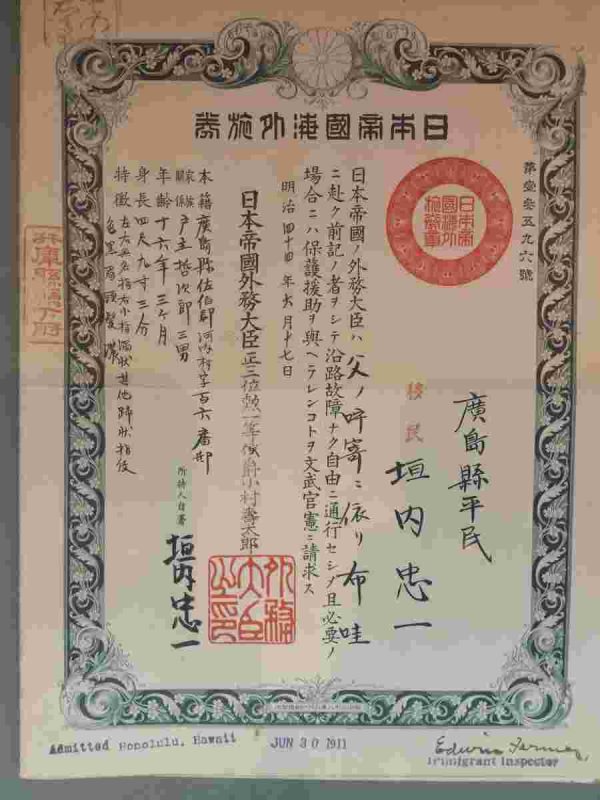 日本帝國海外旅券
第壹參五九六號
日本帝國海外旅券章
廣島縣平民
移民
垣内忠一
日本帝國ノ外務大臣ハ父ノ呼寄ニ依リ布哇
ニ赴ク前記ノ者ヲシテ沿路故障ナク自由ニ通行セシメ且必要ノ
場合ニハ保護援助ヲ與ヘラレンコトヲ文武官憲ニ請求ス
明治四十四年六月十七日
日本帝國外務大臣正三位勲一等侯爵小村壽太郎
外務大臣之印
本籍 廣島縣佐伯郡河内村字百六番邸
家族關係 戸主哲次郎三男
年齢 十六年三ヶ月
身長 四尺九寸三分
特徴
所持人自署
垣内忠一
Admitted Honolulu, Hawaii
JUN 30 1911
Edwin Farmer
Immigrant Inspector